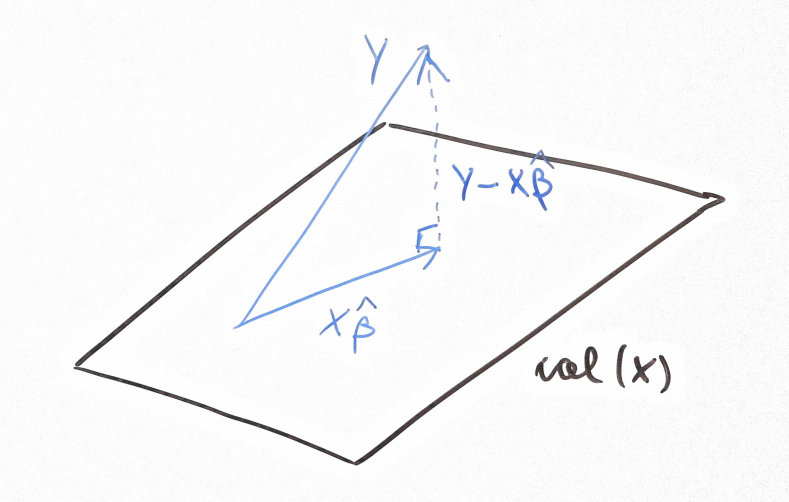 Y
Y - Xβ̂
Xβ̂
col (X)